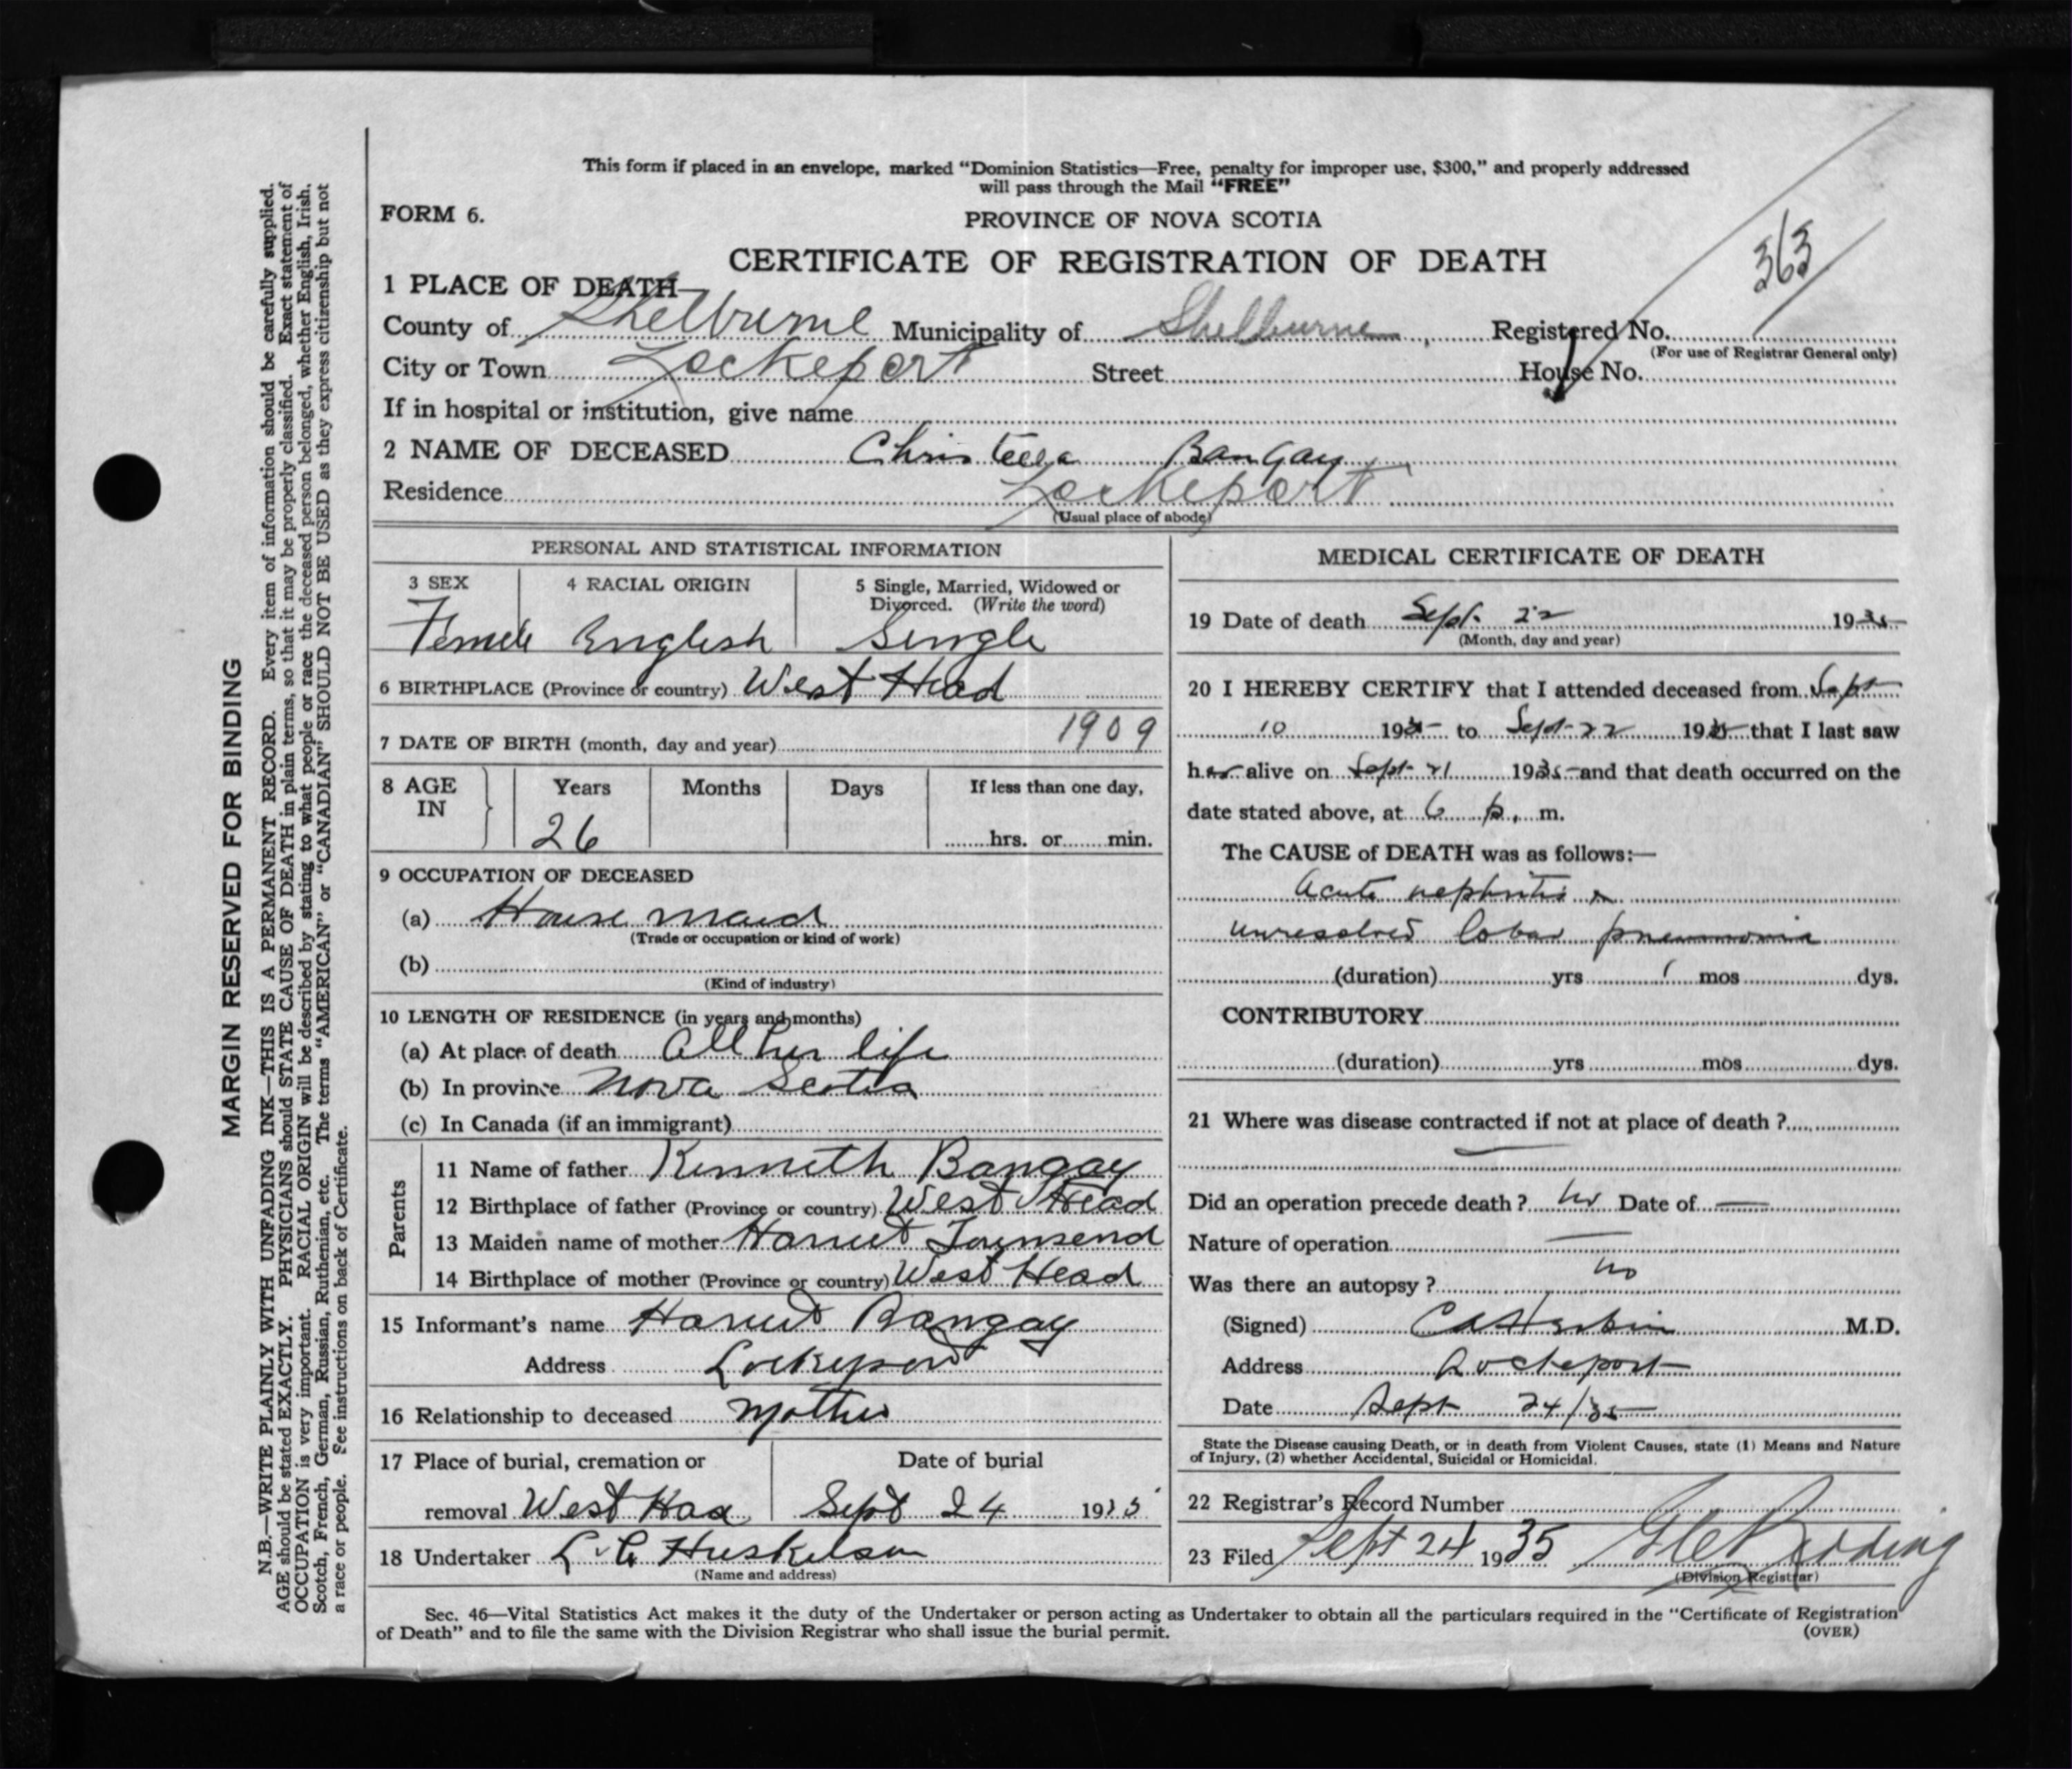 This form if placed in an envelope, marked “Dominion Statistics—Free, penalty for improper use, $300,” and properly addressed
will pass through the Mail “FREE”
FORM 6.
PROVINCE OF NOVA SCOTIA
CERTIFICATE OF REGISTRATION OF DEATH
363
1 PLACE OF DEATH—
County of Shelburne Municipality of Shelburne Registered No.
(For use of Registrar General only)
City or Town Lockeport Street House No.
If in hospital or institution, give name
2 NAME OF DECEASED Christella Bangay
Residence Lockeport
(Usual place of abode)
PERSONAL AND STATISTICAL INFORMATION
3 SEX 4 RACIAL ORIGIN 5 Single, Married, Widowed or
Divorced. (Write the word)
Female English Single
6 BIRTHPLACE (Province or country) West Head
7 DATE OF BIRTH (month, day and year) 1909
8 AGE IN Years Months Days If less than one day,
26 hrs. or min.
9 OCCUPATION OF DECEASED
(a) House maid
(Trade or occupation or kind of work)
(b)
(Kind of industry)
10 LENGTH OF RESIDENCE (in years and months)
(a) At place of death All her life
(b) In province Nova Scotia
(c) In Canada (if an immigrant)
Parents
11 Name of father Kenneth Bangay
12 Birthplace of father (Province or country) West Head
13 Maiden name of mother Harriet Townsend
14 Birthplace of mother (Province or country) West Head
15 Informant's name Harriet Bangay
Address Lockeport
16 Relationship to deceased Mother
17 Place of burial, cremation or Date of burial
removal West Head Sept 24 1935
18 Undertaker L. C. Huskilson
(Name and address)
MEDICAL CERTIFICATE OF DEATH
19 Date of death Sept. 22 1935
(Month, day and year)
20 I HEREBY CERTIFY that I attended deceased from Sept
10 1935 to Sept 22 1935 that I last saw
her alive on Sept 21 1935 and that death occurred on the
date stated above, at 6 p. m.
The CAUSE of DEATH was as follows:—
Acute nephritis &
unresolved lobar pneumonia
(duration) yrs 1 mos dys.
CONTRIBUTORY
(duration) yrs mos dys.
21 Where was disease contracted if not at place of death ? —
Did an operation precede death ? no Date of —
Nature of operation —
Was there an autopsy ? no
(Signed) M.D.
Address Lockeport
Date Sept 24/35
State the Disease causing Death, or in death from Violent Causes, state (1) Means and Nature
of Injury, (2) whether Accidental, Suicidal or Homicidal.
22 Registrar's Record Number
23 Filed Sept 24 1935
(Division Registrar)
Sec. 46—Vital Statistics Act makes it the duty of the Undertaker or person acting as Undertaker to obtain all the particulars required in the “Certificate of Registration
of Death” and to file the same with the Division Registrar who shall issue the burial permit.
(OVER)
MARGIN RESERVED FOR BINDING
N.B.—WRITE PLAINLY WITH UNFADING INK—THIS IS A PERMANENT RECORD. Every item of information should be carefully supplied.
AGE should be stated EXACTLY. PHYSICIANS should STATE CAUSE OF DEATH in plain terms, so that it may be properly classified. Exact statement of
OCCUPATION is very important. RACIAL ORIGIN will be described by stating to what people or race the deceased person belonged, whether English, Irish,
Scotch, French, German, Russian, Ruthenian, etc. The terms “AMERICAN” or “CANADIAN” SHOULD NOT BE USED as they express citizenship but not
a race or people. See instructions on back of Certificate.